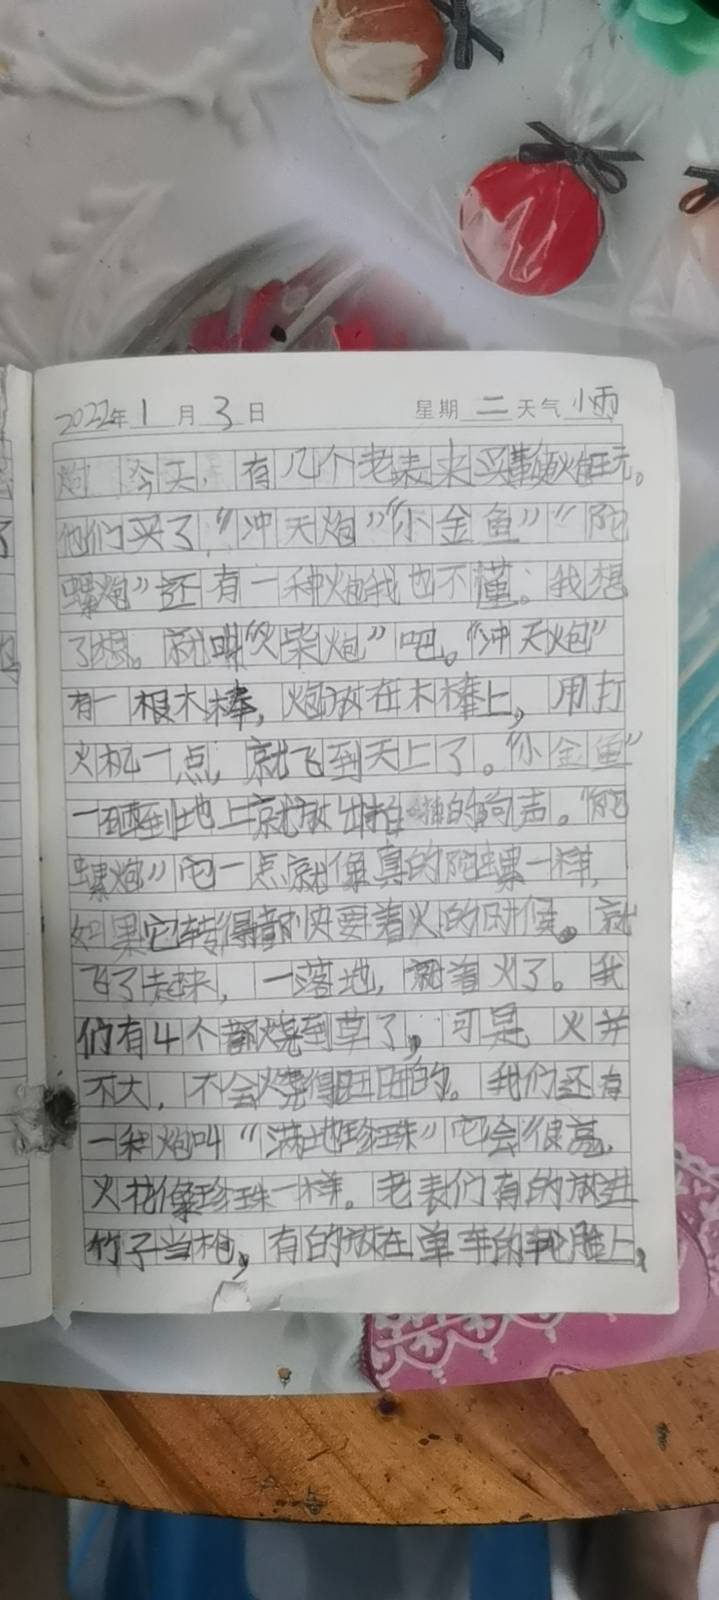 2022年1月3日 星期二天气小雨
今天，有几个老表来买鞭炮玩。
他们买了，“冲天炮”“小金鱼”“陀
螺炮”还有一种炮我也不懂。我想
了想。就叫“火柴炮”吧。“冲天炮”
有一根木棒，炮放在木棒上，用打
火机一点，就飞到天上了。“小金鱼”
一砸到地上就放出的响声。“陀
螺炮”它一点就像真的陀螺一样，
如果它转得都快要着火的时候。就
飞了起来，一落地，就着火了。我
们有4个都烧到草了，可是火并
不大，不会烧得旺旺的。我们还有
一种炮叫“满地珍珠”它会很高，
火花像珍珠一样。老表们有的放进
竹子当枪，有的放在单车的轮胎上，